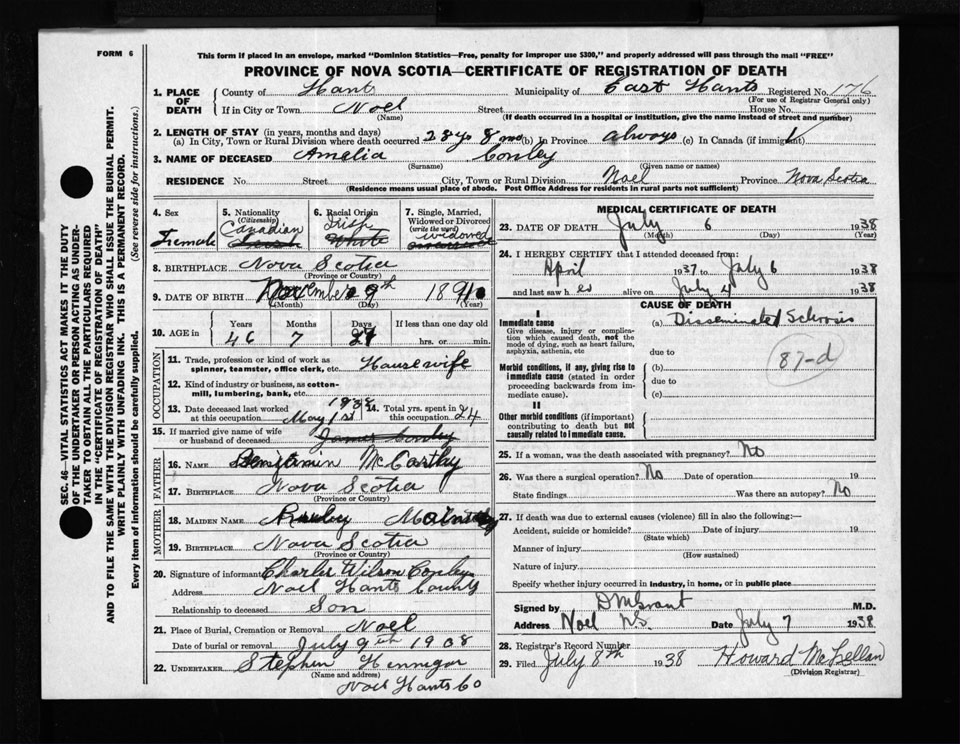 FORM 6
This form if placed in an envelope, marked "Dominion Statistics—Free, penalty for improper use $300," and properly addressed will pass through the mail "FREE"
PROVINCE OF NOVA SCOTIA—CERTIFICATE OF REGISTRATION OF DEATH
SEC. 46—VITAL STATISTICS ACT MAKES IT THE DUTY
OF THE UNDERTAKER OR PERSON ACTING AS UNDER-
TAKER TO OBTAIN ALL THE PARTICULARS REQUIRED
IN THE "CERTIFICATE OF REGISTRATION OF DEATH"
AND TO FILE THE SAME WITH THE DIVISION REGISTRAR WHO SHALL ISSUE THE BURIAL PERMIT.
WRITE PLAINLY WITH UNFADING INK. THIS IS A PERMANENT RECORD.
Every item of information should be carefully supplied. (See reverse side for instructions.)
1. PLACE OF DEATH
County of Hants Municipality of East Hants Registered No. 176
(For use of Registrar General only)
If in City or Town Noel Street House No.
(Name) (If death occurred in a hospital or institution, give the name instead of street and number)
2. LENGTH OF STAY (in years, months and days)
(a) In City, Town or Rural Division where death occurred 28 yo 8 mo (b) In Province always (c) In Canada (if immigrant)
3. NAME OF DECEASED Amelia Conley
(Surname) (Given name or names)
RESIDENCE No. Street City, Town or Rural Division Noel Province Nova Scotia
(Residence means usual place of abode. Post Office Address for residents in rural parts not sufficient)
4. Sex Female
5. Nationality (Citizenship) Canadian
6. Racial Origin Irish White
7. Single, Married, Widowed or Divorced (write the word) widowed
8. BIRTHPLACE Nova Scotia
(Province or Country)
9. DATE OF BIRTH November 9th 1891
(Month) (Day) (Year)
10. AGE in Years Months Days If less than one day old
46 7 27 hrs. or min.
OCCUPATION
11. Trade, profession or kind of work as spinner, teamster, office clerk, etc. Housewife
12. Kind of industry or business, as cotton-mill, lumbering, bank, etc.
13. Date deceased last worked at this occupation May 1st 1938
14. Total yrs. spent in this occupation 24
15. If married give name of wife or husband of deceased James Conley
FATHER
16. NAME Benjamin McCarthy
17. BIRTHPLACE Nova Scotia
(Province or Country)
MOTHER
18. MAIDEN NAME
19. BIRTHPLACE Nova Scotia
(Province or Country)
20. Signature of informant Charles Wilson Conley
Address Noel Hants County
Relationship to deceased Son
21. Place of Burial, Cremation or Removal Noel
Date of burial or removal July 9th 1938
22. UNDERTAKER Stephen Hennigar
(Name and address)
Noel Hants Co
MEDICAL CERTIFICATE OF DEATH
23. DATE OF DEATH July 6 1938
(Month) (Day) (Year)
24. I HEREBY CERTIFY that I attended deceased from:
April 1937 to July 6 1938
and last saw her alive on July 4 1938
CAUSE OF DEATH
I
Immediate cause (a) Disseminated Sclerosis
Give disease, injury or complica-
tion which caused death, not the
mode of dying, such as heart failure,
asphyxia, asthenia, etc
due to
87-d
Morbid conditions, if any, giving rise to
immediate cause (stated in order
proceeding backwards from im-
mediate cause).
(b)
due to
(c)
II
Other morbid conditions (if important)
contributing to death but not
causally related to immediate cause.
25. If a woman, was the death associated with pregnancy? No
26. Was there a surgical operation? No Date of operation 19
State findings Was there an autopsy? No
27. If death was due to external causes (violence) fill in also the following:—
Accident, suicide or homicide? Date of injury 19
(State which)
Manner of injury
(How sustained)
Nature of injury
Specify whether injury occurred in industry, in home, or in public place
Signed by DM Grant M.D.
Address Noel N.S. Date July 7 1938
28. Registrar's Record Number
29. Filed July 8th 1938 Howard McLellan
(Division Registrar)